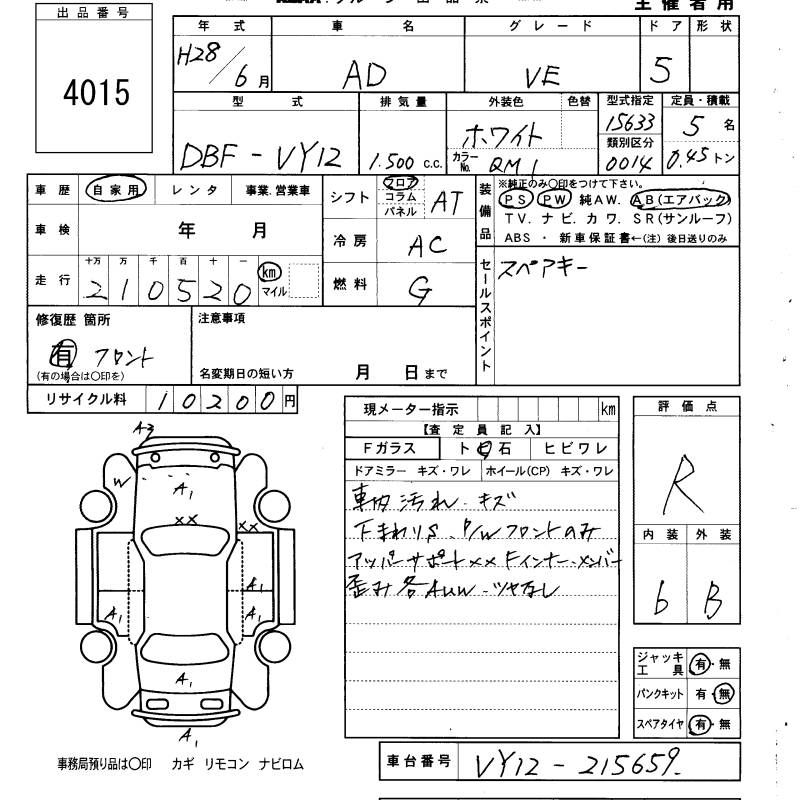 主催者用
出品番号
4015
年式 車名 グレード ドア 形状
H28/6月 AD VE 5
型式 排気量 外装色 色替 型式指定 定員・積載
DBF-VY12 1.500 c.c. ホワイト 15633 5名
カラーNo. QM1 類別区分 0014 0.45トン
車歴 自家用 レンタ 事業.営業車
シフト フロア コラム パネル AT
装備品 ※純正のみ〇印をつけて下さい。
PS PW 純AW. AB(エアバック)
TV. ナビ. カワ. SR(サンルーフ)
ABS ・ 新車保証書←(注) 後日送りのみ
車検 年 月
冷房 AC
走行 十万 万 千 百 十 一
210520 km マイル
燃料 G
セールスポイント スペアキー
修復歴 箇所
有 フロント
(有の場合は〇印を)
注意事項
名変期日の短い方 月 日まで
リサイクル料 10200円
現メーター指示 km
【査定員記入】
Fガラス トビ石 ヒビワレ
ドアミラー キズ・ワレ ホイール(CP) キズ・ワレ
車内汚れ.キズ
下まわりS.P/Wフロントのみ
アッパーサポートXX Fインナー.メンバー
歪み各AUW.ツヤなし
評価点
R
内装 外装
6 B
A2
W
A1
XX
XX
A1
A1
A1
A1
A1
ジャッキ工具 有・無
パンクキット 有・無
スペアタイヤ 有・無
事務局預り品は〇印 カギ リモコン ナビロム
車台番号 VY12-215659.